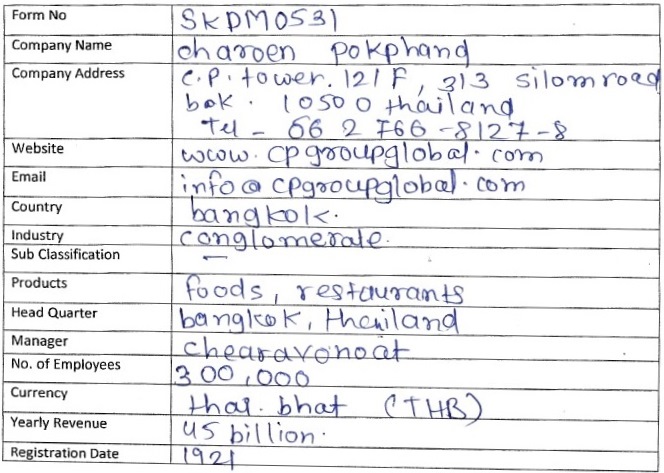 Form No SKDM0531
Company Name charoen pokphand
Company Address c.p. tower. 121F, 313 silom road
bok. 10500 thailand
Tel - 66 2 766 -8127-8
Website www.cpgroupglobal.com
Email info@cpgroupglobal.com
Country bangkok.
Industry conglomerate.
Sub Classification —
Products foods, restaurants
Head Quarter bangkok, thailand
Manager chearavonoat
No. of Employees 300,000
Currency thai. bhat (THB)
Yearly Revenue 45 billion.
Registration Date 1921